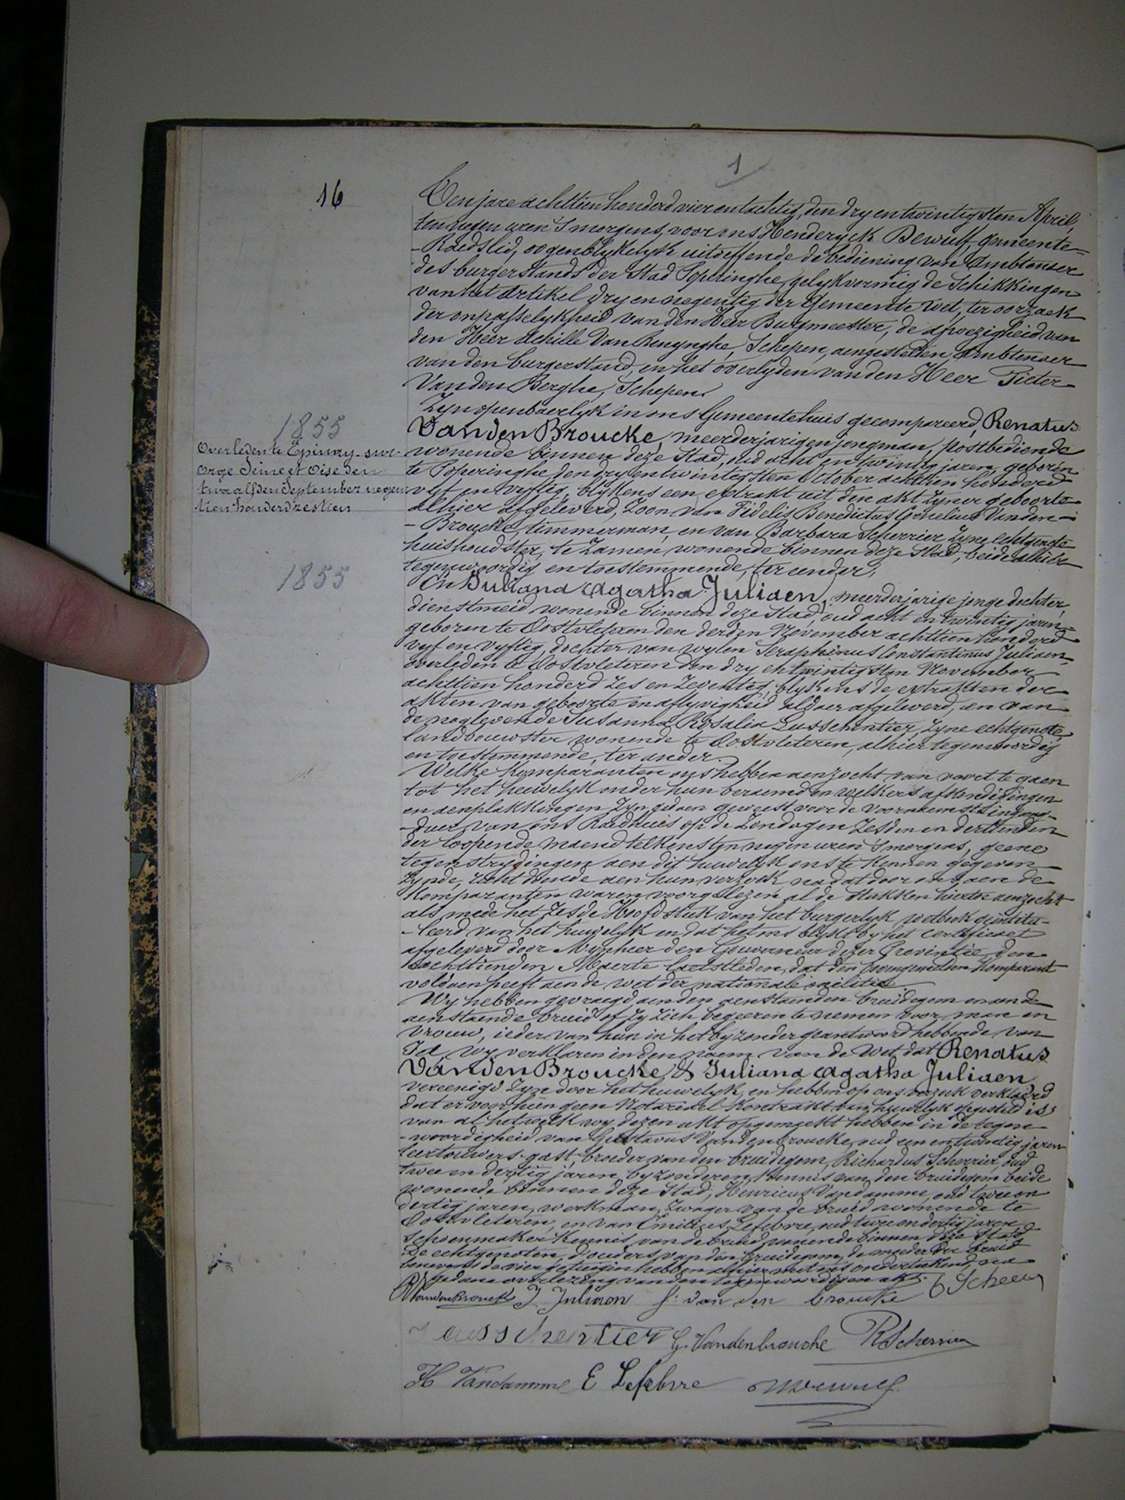 1
16
Ten jare achttien honderd vier en tachtig, den dry en twintigsten April,
ten negen uren 's morgens, voor ons Henderyck Dewulf, gemeente-
-Raedslid, oogenblikkelyk uitoeffende de bediening van Ambtenaer
des burgerstands der Stad Poperinghe, gelykvormig de Schikkingen
van het Artikel dry en negentig der Gemeente Wet, ter oorzaek
der onpasselykheid van den Heer Burgmeester, de afwezigheid van
den Heer Achille Van Renynghe, Schepen, aengestelden Ambtenaer
van den burgerstand, en het overlyden van den Heer Pieter
Vanden Berghe, Schepen,
Zyn openbaerlyk in ons Gemeentehuis gecompareerd, Renatus
1855
Vanden Broucke, meerderjarigen jongman, postbediende
Overleden te Epinay-sur-
orge Seine et Oise den
twaalfden September negen-
tien honderd zestien
wonende binnen deze Stad, oud acht en twintig jaren, geboren
te Poperinghe den dry en twintigsten October achttien honderd
vyf en vyftig, blykens een extrakt uit den akt zyner geboorte
alhier afgeleverd, Zoon van Fidelis Benedictus Cornelius Vanden-
-Broucke, timmerman, en van Barbara Scherrier zyne echtgenote
huishoudster, te zamen wonende binnen deze Stad, beide alhier
tegenwoordig en toestemmende, ter eender,
1855
En Juliana Agatha Juliaen, meerderjarige jonge dochter,
dienstmeid, wonende binnen deze Stad, oud acht en twintig jaren,
geboren te Oostvleteren den derden November achttien honderd
vyf en vyftig, dochter van wylen Seraphinus Constantinus Juliaen,
overleden te Oostvleteren den dry en twintigsten November
achttien honderd zes en zeventig, blykens de extrakten der
akten van geboorte en aflyvigheid aldaer afgeleverd, en van
de noglevende Susanna Rosalia Lusschentier, zyne echtgenote,
landbouwster, wonende te Oostvleteren, alhier tegenwoordig
en toestemmende, ter ander.
Welke komparanten ons hebben aenzocht van voort te gaen
tot het huwelyk onder hun beraemd en welkers afkondigingen
en aenplakkingen zyn gedaen geweest voor de voornaemste ingang-
-deur van ons Raedhuis op de Zondagen zesden en dertienden
der loopende maend telkens ten negen uren 's morgens, geene
tegenstrydigingen aen dit huwelyk ons te kennen gegeven
zynde, recht doende aen hun verzoek na dat door ons aen de
komparanten waren voorgelezen al de stukken hierboven aenzocht
als mede het zesde Hoofdstuk van het burgerlyk wetboek geintitu-
-leerd van het huwelyk en dat het ons blykt by het certificaet
afgeleverd door Mynheer den Gouverneur dezer Provintie den
achttienden Maerte laetstleden, dat den voorgemelden komparant
voldaen heeft aen de wet der nationale militie.
Wy hebben gevraegd aen den aenstaenden bruidegom en aen de
aenstaende bruid of zy zich begeeren te nemen voor man en
vrouw, ieder van hun in het byzonder geantwoord hebbende van
Ja, wy verklaren in den naem van de Wet dat Renatus
Vanden Broucke & Juliana Agatha Juliaen
vereenigd zyn door het huwelyk, en hebben op ons verzoek verklaerd
dat er voor hun geen Notarieel kontrakt van huwelyk opgesteld is;
van al hetwelk wy dezen akt opgemaekt hebben in de tegen-
-woordigheid van Gustavus Vandenbroucke, oud een en twintig jaren
leertouwersgast, broeder van den bruidegom, Richardus Scherrier, oud
twee en dertig jaren, byzonderen, kennis van den bruidegom beide
wonende binnen deze Stad, Henricus Vandamme, oud twee en
dertig jaren, werkman, zwager van de bruid wonende te
Oostvleteren, en van Emilius Lefebvre, oud twee en dertig jaren
Schoenmaker, kennis van de bruid wonende binnen deze Stad
De echtgenoten, d'ouders van den bruidegom, de moeder der bruid
benevens de vier getuigen hebben alhier met ons onderteekend, na
gedane voorlezing van den tegenwoordigen akt.
R Vandenbroucke J Juliaen f. van den broucke B Scheerr
Lusschentier G. Vandenbroucke R Scherrier
H Vandamme E Lefebvre H Dewulf